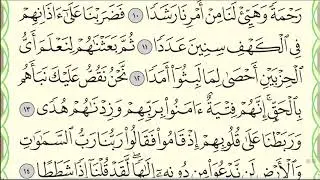 رَحْمَةً وَهَيِّئْ لَنَا مِنْ أَمْرِنَا رَشَدًا ١٠ فَضَرَبْنَا عَلَىٰٓ ءَاذَانِهِمْ
فِى ٱلْكَهْفِ سِنِينَ عَدَدًا ١١ ثُمَّ بَعَثْنَٰهُمْ لِنَعْلَمَ أَىُّ
ٱلْحِزْبَيْنِ أَحْصَىٰ لِمَا لَبِثُوٓا۟ أَمَدًا ١٢ نَّحْنُ نَقُصُّ عَلَيْكَ نَبَأَهُم
بِٱلْحَقِّ ۚ إِنَّهُمْ فِتْيَةٌ ءَامَنُوا۟ بِرَبِّهِمْ وَزِدْنَٰهُمْ هُدًى ١٣
وَرَبَطْنَا عَلَىٰ قُلُوبِهِمْ إِذْ قَامُوا۟ فَقَالُوا۟ رَبُّنَا رَبُّ ٱلسَّمَٰوَٰتِ
وَٱلْأَرْضِ لَن نَّدْعُوَا۟ مِن دُونِهِۦٓ إِلَٰهًا ۖ لَّقَدْ قُلْنَآ إِذًا شَطَطًا ١٤